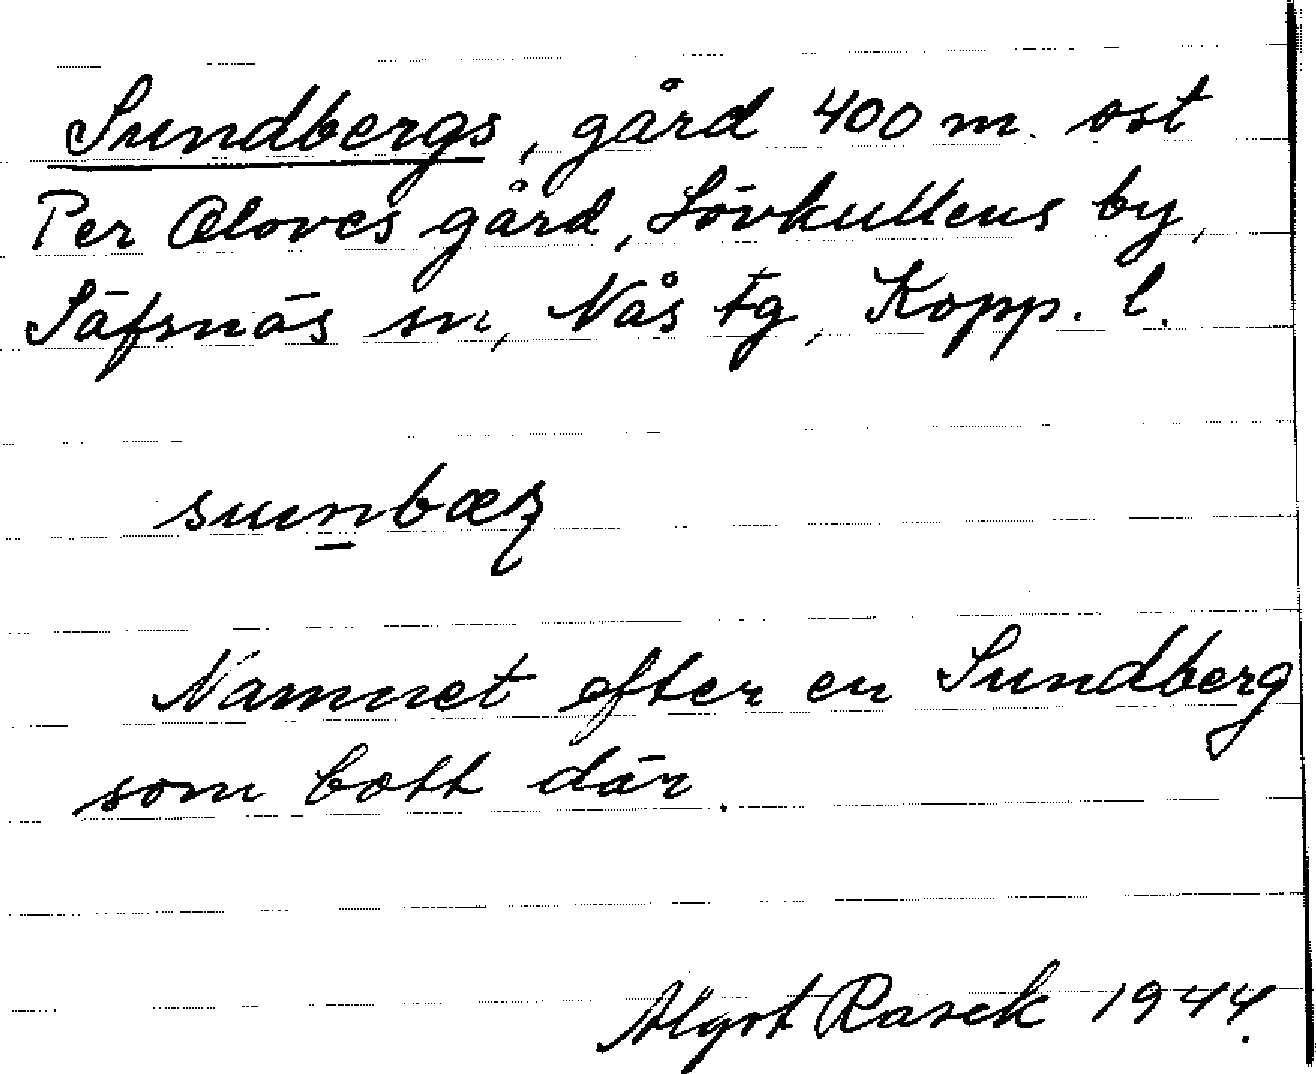 Sundbergs, gård 400 m. ost
Per Oloves gård, Lövkullens by,
Säfsnäs sn, Nås tg, Kopp. l.
Namnet efter en Sundberg
som bott där.
Algot Rasek 1944.